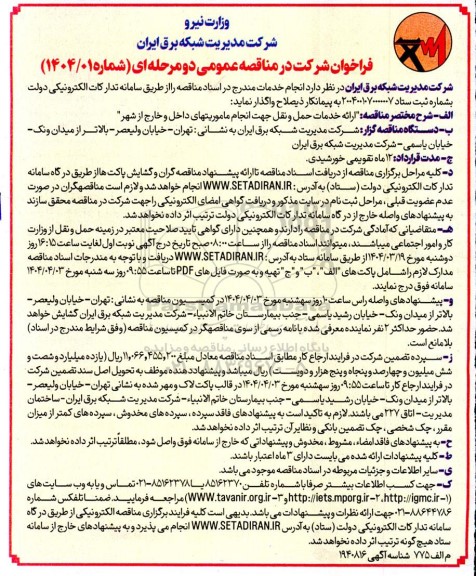 وزارت نیرو
شرکت مدیریت شبکه برق ایران
فراخوان شرکت در مناقصه عمومی دو مرحله‌ای (شماره ۱۴۰۴/۰۱)
شرکت مدیریت شبکه برق ایران در نظر دارد انجام خدمات مندرج در اسناد مناقصه را از طریق سامانه تدارکات الکترونیکی دولت
بشماره ثبت ستاد ۲۰۰۴۰۰۱۰۷۰۰۰۰۰۰۷ به پیمانکار ذیصلاح واگذار نماید:
الف- شرح مختصر مناقصه: "ارائه خدمات حمل و نقل جهت انجام ماموریتهای داخل و خارج از شهر"
ب- دستگاه مناقصه گزار: شرکت مدیریت شبکه برق ایران به نشانی: تهران- خیابان ولیعصر- بالاتر از میدان ونک-
خیابان یاسمی- شرکت مدیریت شبکه برق ایران
ج- مدت قرارداد: ۱۲ ماه تقویمی خورشیدی.
د- کلیه مراحل برگزاری مناقصه از دریافت اسناد مناقصه تا ارائه پیشنهاد مناقصه گران و گشایش پاکت‌ها از طریق درگاه سامانه
تدارکات الکترونیکی دولت (ستاد) به آدرس: WWW.SETADIRAN.IR انجام خواهد شد و لازم است مناقصه‌گران در صورت
عدم عضویت قبلی، مراحل ثبت نام در سایت مذکور و دریافت گواهی امضای الکترونیکی را جهت شرکت در مناقصه محقق سازند
به پیشنهادهای واصله خارج از درگاه سامانه تدارکات الکترونیکی دولت ترتیب اثر داده نخواهد شد.
هـ- متقاضیانی که آمادگی شرکت در مناقصه را دارند و همچنین دارای گواهی تایید صلاحیت معتبر در زمینه حمل و نقل از وزارت
کار و امور اجتماعی میباشند، میتوانند اسناد مناقصه را از ساعت ۰۸:۰۰ صبح تاریخ درج آگهی نوبت اول لغایت ساعت ۱۶:۱۵ روز
دوشنبه مورخ ۱۴۰۴/۰۳/۱۹ از طریق سامانه ستاد به آدرس: WWW.SETADIRAN.IR دریافت و با توجه به مندرجات اسناد مناقصه
مدارک لازم را شامل پاکت های "الف"، "ب" و "ج" تهیه و به صورت فایل های PDF تا ساعت ۰۹:۵۵ روز سه شنبه مورخ ۱۴۰۴/۰۴/۰۳
سامانه فوق درج نمایند.
و- پیشنهادهای واصله راس ساعت ۱۰ روز سه‌شنبه مورخ ۱۴۰۴/۰۴/۰۳ در کمیسیون مناقصه به نشانی: تهران- خیابان ولیعصر-
بالاتر از میدان ونک- خیابان رشید یاسمی- جنب بیمارستان خاتم الانبیاء- شرکت مدیریت شبکه برق ایران گشایش خواهد
شد. حضور حداکثر ۲ نفر نماینده معرفی شده با نامه رسمی از سوی مناقصه‌گر در کمیسیون مناقصه (وفق شرایط مندرج در اسناد)
بلامانع است.
ز- سپرده تضمین شرکت در فرایند ارجاع کار مطابق اسناد مناقصه معادل مبلغ ۱۱,۰۶۶,۴۵۵,۲۰۰ ریال (یازده میلیارد و شصت و
شش میلیون و چهارصد و پنجاه و پنج هزار و دویست) ریال میباشد و پیشنهاد دهنده موظف به تحویل اصل سند تضمین شرکت
در فرایند ارجاع کار تا ساعت ۰۹:۵۵ روز سه‌شنبه مورخ ۱۴۰۴/۰۴/۰۳ در قالب پاکت لاک و مهر شده به نشانی تهران- خیابان ولیعصر-
بالاتر از میدان ونک- خیابان رشید یاسمی- جنب بیمارستان خاتم الانبیاء- شرکت مدیریت شبکه برق ایران- ساختمان
مدیریت- اتاق ۲۲۷ می باشند. لازم به تاکید است به پیشنهادهای فاقد سپرده، سپرده های مخدوش، سپرده های کمتر از میزان
مقرر، چک شخصی، چک تضمین بانکی و نظایر آن ترتیب اثر داده نخواهد شد.
ح- به پیشنهادهای فاقد امضاء، مشروط، مخدوش و پیشنهاداتی که خارج از سامانه فوق واصل شود، مطلقاً ترتیب اثر داده نخواهد شد.
ط- کلیه پیشنهادات ارائه شده می بایست دارای ۳ ماه اعتبار باشند.
ی- سایر اطلاعات و جزئیات مربوطه در اسناد مناقصه موجود می باشد.
ک- جهت کسب اطلاعات بیشتر صرفا با شماره تلفن ۸۵۱۶۲۳۷۰ یا ۸۵۱۶۲۳۷۸-۰۲۱ تماس و یا به وب سایت های
(۱- http://igmc.ir، ۲- http://iets.mporg.ir و ۳- WWW.tavanir.org.ir) مراجعه فرمایید. ضمنا تلفکس شماره
۰۲۱-۸۸۶۴۴۷۸۶ جهت ارائه نظرات و پیشنهادات می باشد. بدیهی است کلیه فرایند برگزاری مناقصه الکترونیکی از طریق درگاه
سامانه تدارکات الکترونیکی دولت (ستاد) به آدرس WWW.SETADIRAN.IR انجام می پذیرد و به پیشنهادهای خارج از سامانه
ستاد هیچ گونه ترتیب اثر داده نخواهد شد.
م الف ۷۷۵ شناسه آگهی ۱۹۴۰۸۱۶